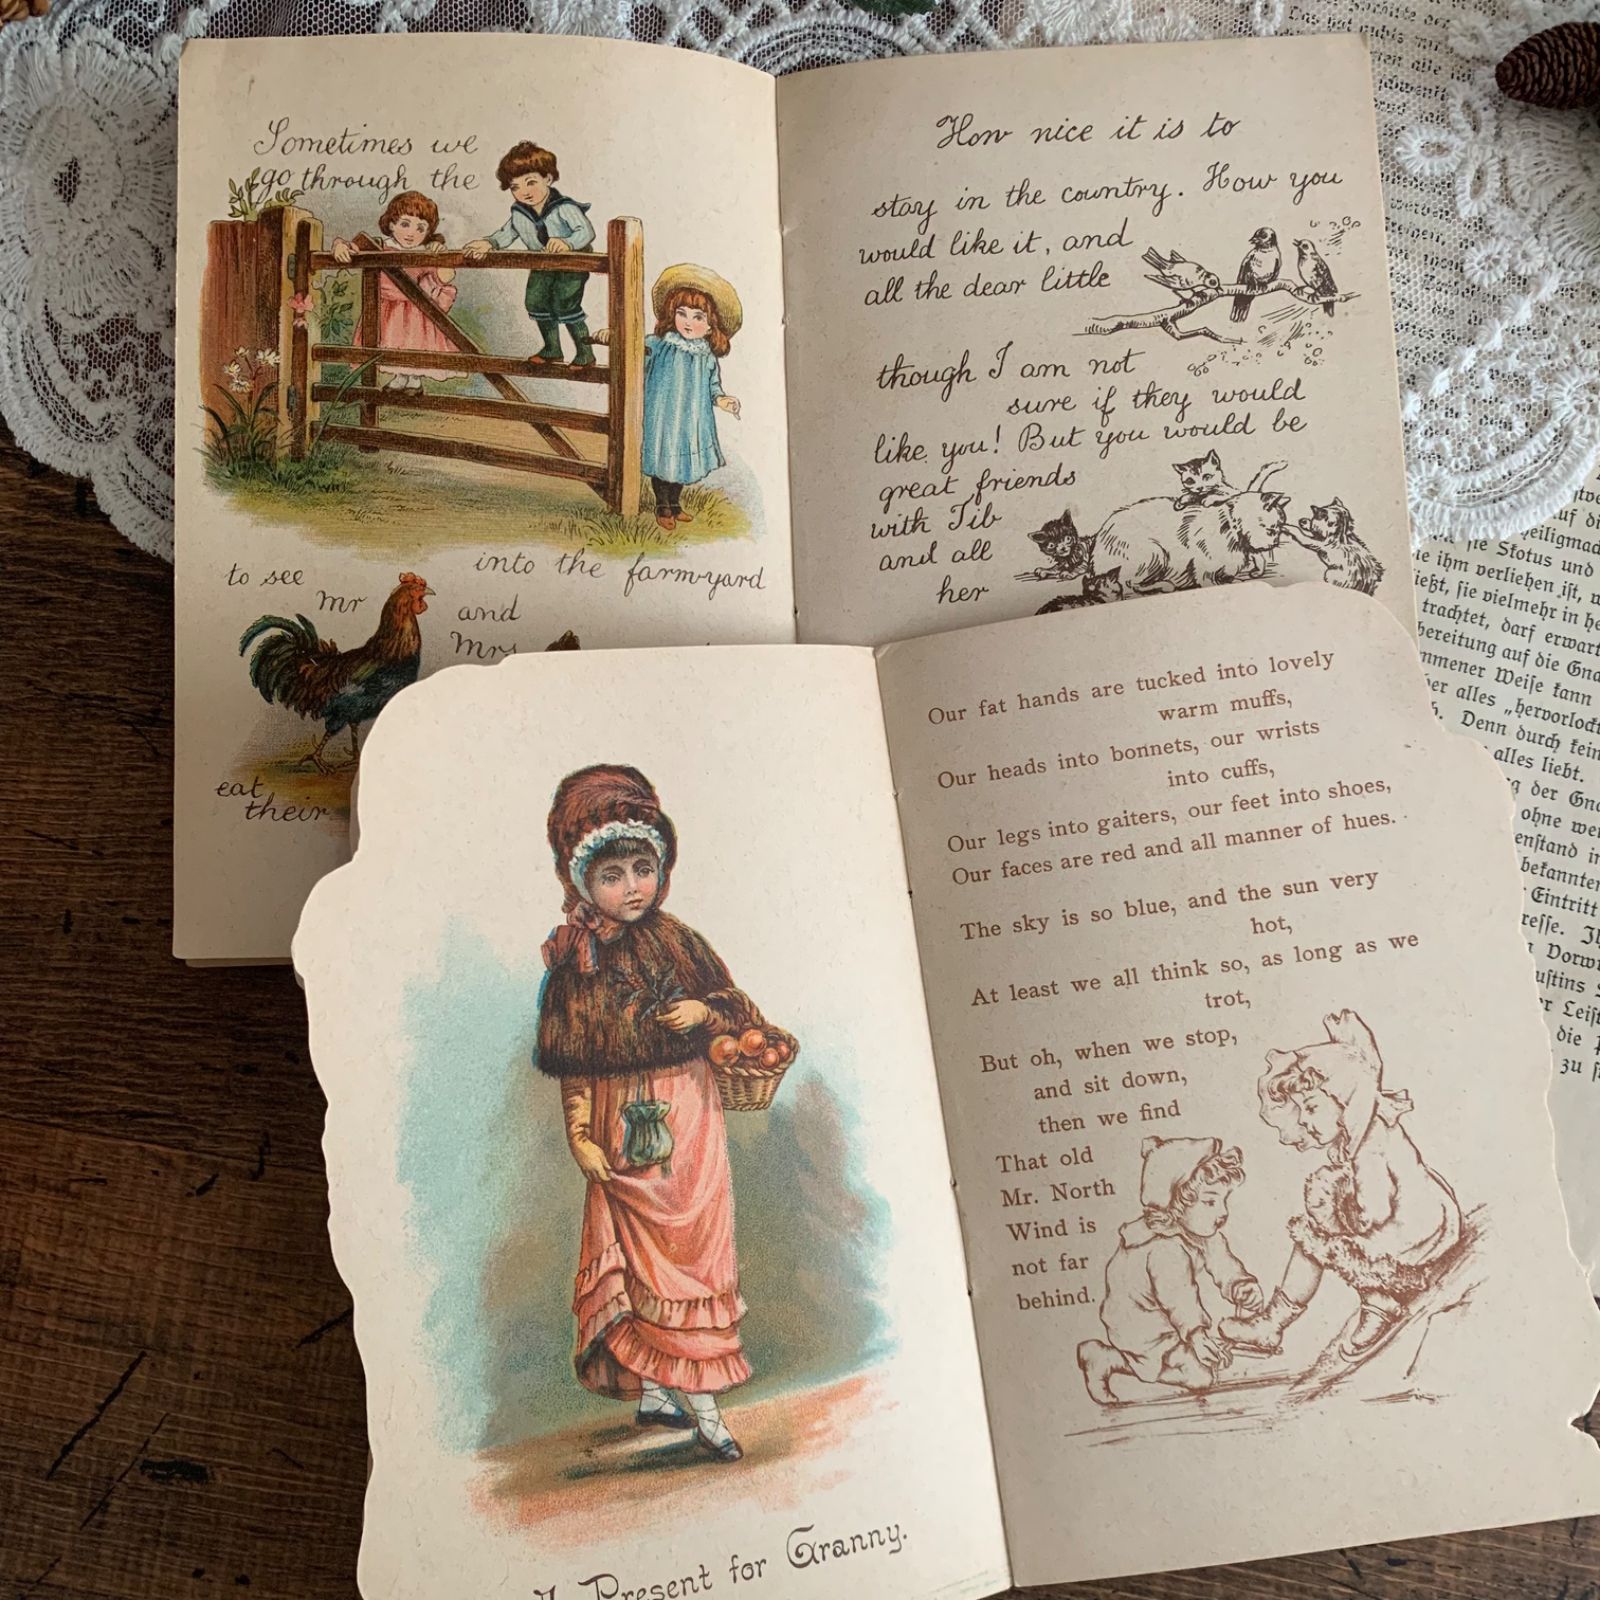 Sometimes we
go through the
into the farmyard
to see
Mr
and
Mrs
eat
their
How nice it is to
stay in the country. How you
would like it, and
all the dear little
though I am not
sure if they would
like you! But you would be
great friends
with Tib
and all
her
A Present for Granny.
Our fat hands are tucked into lovely
warm muffs,
Our heads into bonnets, our wrists
into cuffs,
Our legs into gaiters, our feet into shoes,
Our faces are red and all manner of hues.
The sky is so blue, and the sun very
hot,
At least we all think so, as long as we
trot,
But oh, when we stop,
and sit down,
then we find
That old
Mr. North
Wind is
not far
behind.
sie Skotus und
ihm verliehen ist,
sie vielmehr in
trachtet, darf
bereitung auf die
Weise kann
alles „hervorlock
Denn durch
alles liebt.
der
ohne
Eintritt
Vorw
die
zu